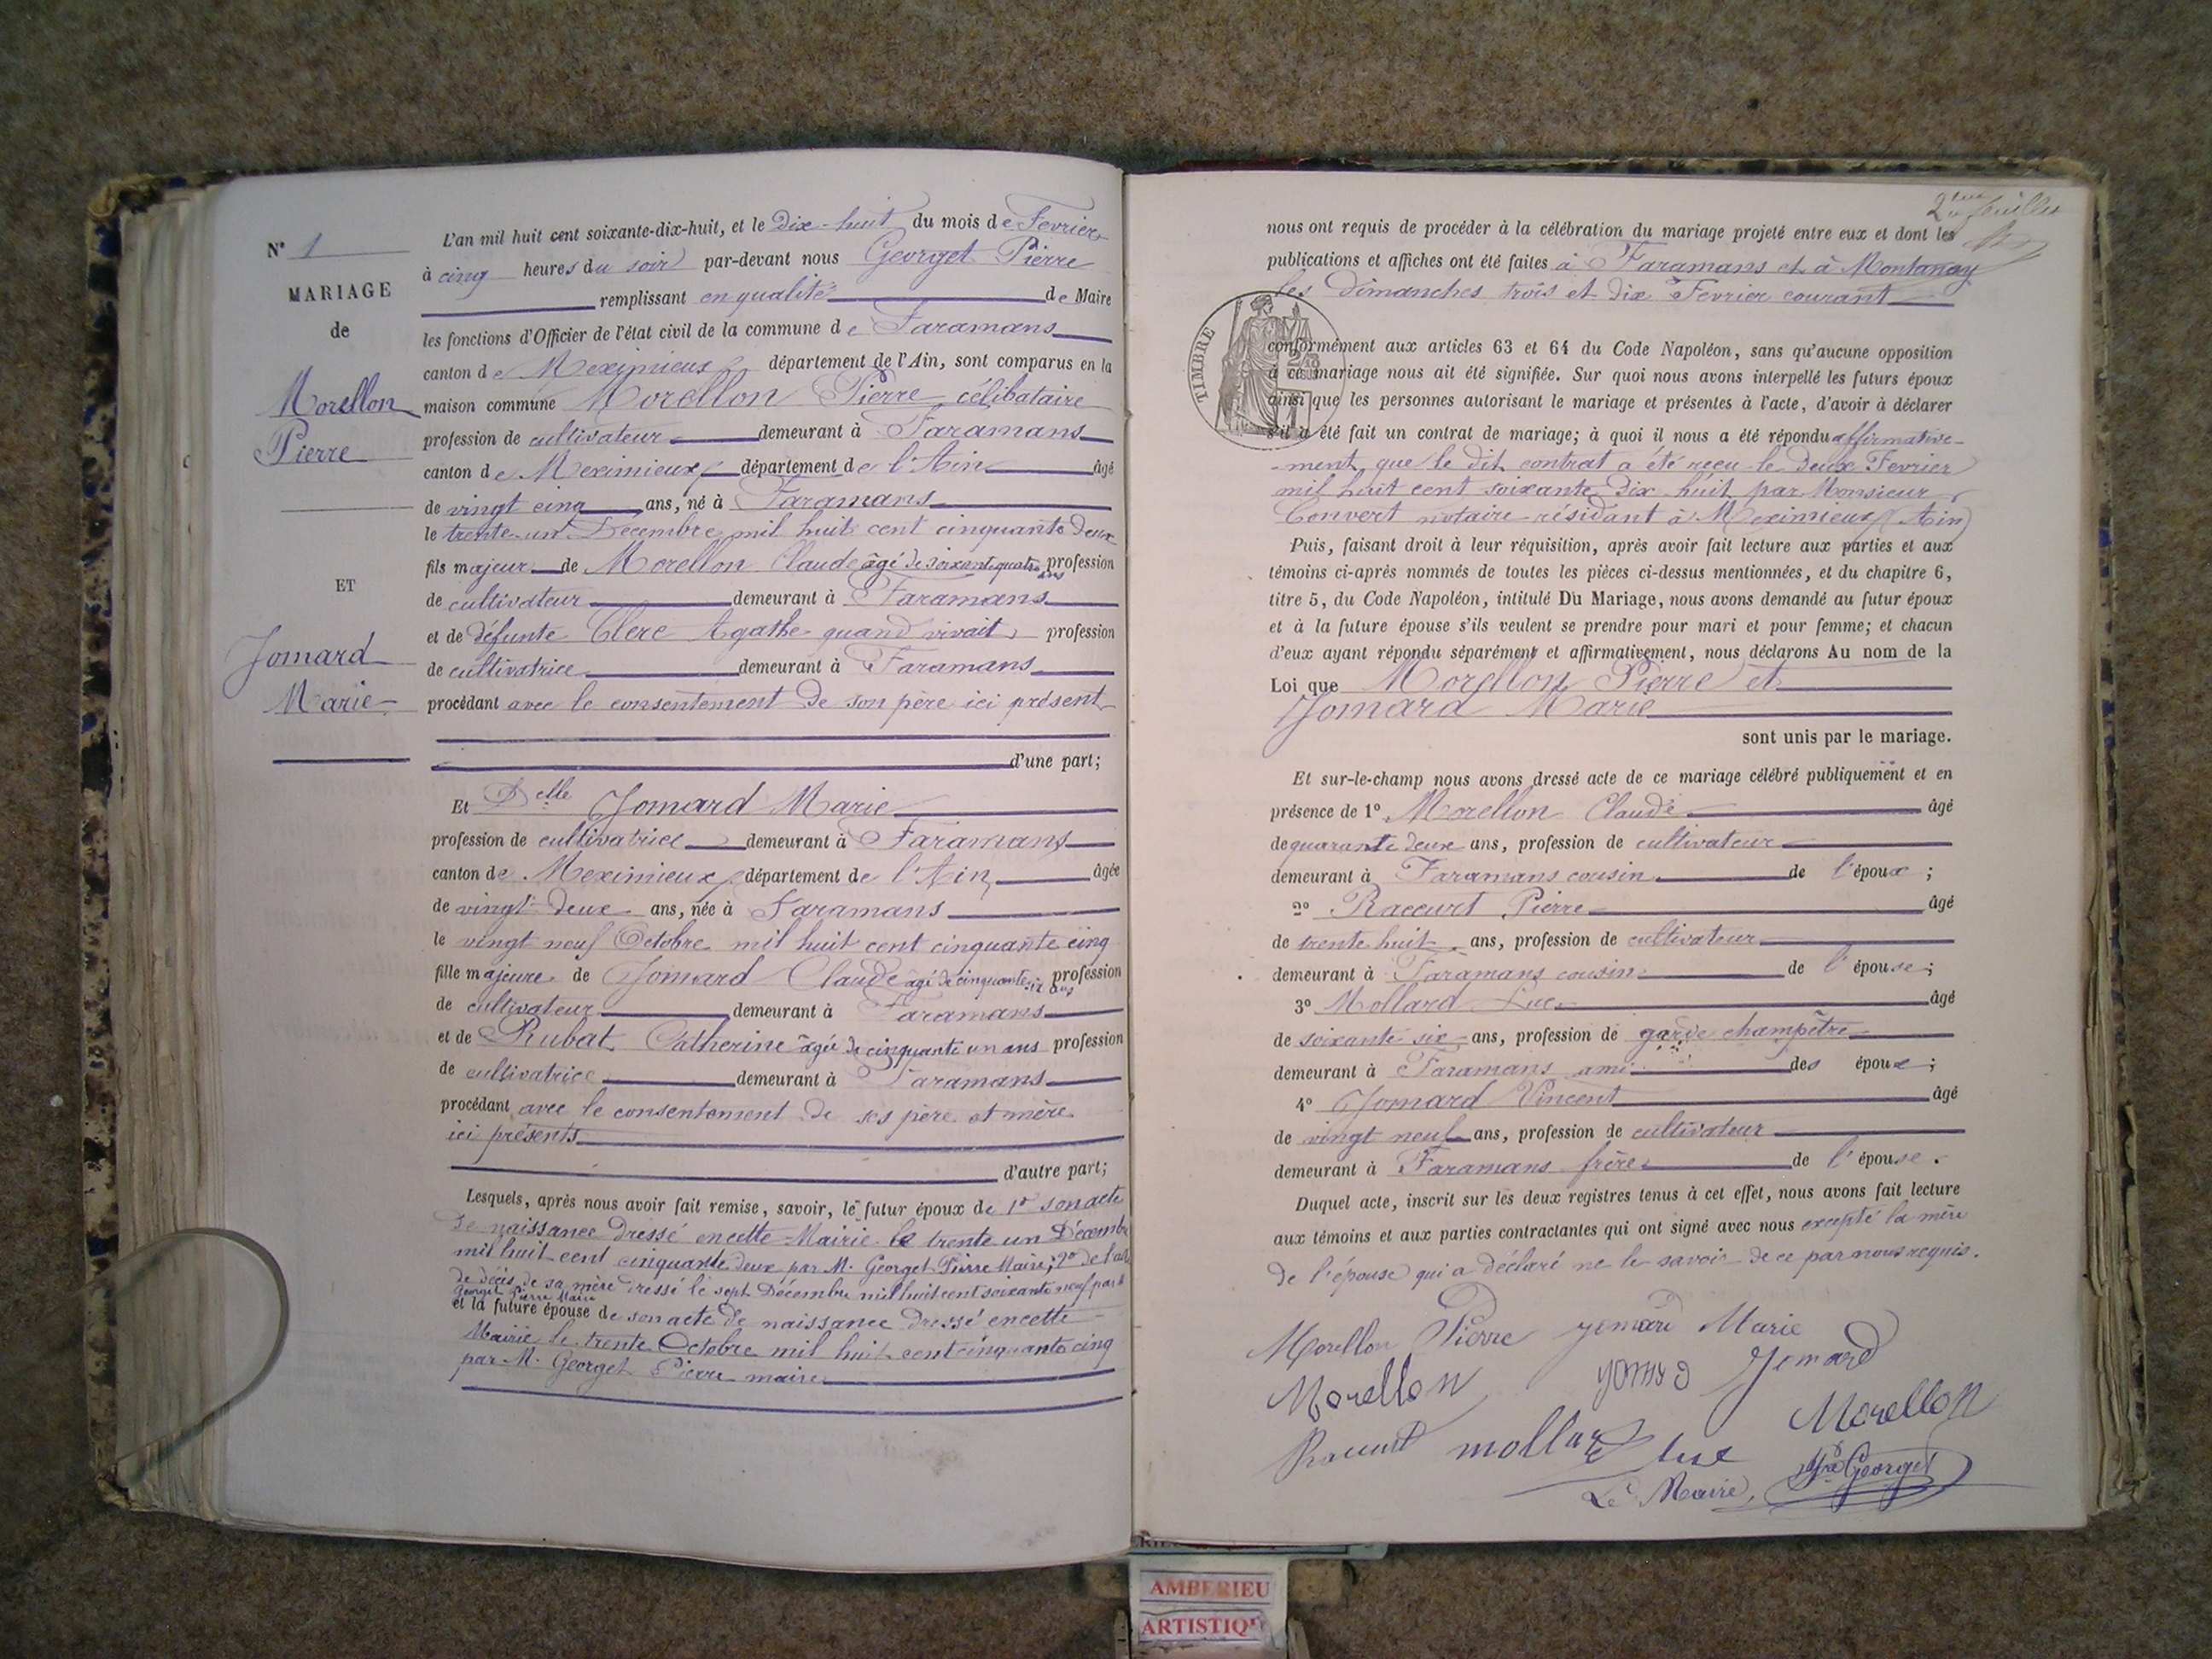 N° 1
MARIAGE
de
Morellon
Pierre
ET
Jomard
Marie
L'an mil huit cent soixante-dix-huit, et le Dix-huit du mois de Fevrier
à cinq heures du soir par-devant nous Georget Pierre
remplissant en qualité de Maire
les fonctions d'Officier de l'état civil de la commune de Faramans
canton de Meximieux, département de l'Ain, sont comparus en la
maison commune Morellon Pierre célibataire
profession de cultivateur demeurant à Faramans
canton de Meximieux, département de l'Ain âgé
de vingt cinq ans, né à Faramans
le trente-un Decembre mil huit cent cinquante deux
fils majeur de Morellon Claude âgé de soixante quatre ans profession
de cultivateur demeurant à Faramans
et de défunte Clerc Agathe quand vivait, profession
de cultivatrice demeurant à Faramans
procédant avec le consentement de son père ici présent
d'une part;
Et Delle Jomard Marie
profession de cultivatrice demeurant à Faramans
canton de Meximieux, département de l'Ain, âgée
de vingt-deux ans, née à Faramans
le vingt neuf Octobre mil huit cent cinquante cinq
fille majeure de Jomard Claude âgé de cinquante-six ans profession
de cultivateur demeurant à Faramans
et de Rubat Catherine âgée de cinquante un ans profession
de cultivatrice demeurant à Faramans
procédant avec le consentement de ses père et mère
ici présents
d'autre part;
Lesquels, après nous avoir fait remise, savoir, le futur époux de 1° son acte
de naissance dressé en cette Mairie le trente un Décembre
mil huit cent cinquante deux par M. Georget Pierre Maire; 2° de l'acte
de décès de sa mère dressé le sept Décembre mil huit cent soixante neuf par M
Georget Pierre Maire
et la future épouse de son acte de naissance dressé en cette
Mairie le trente Octobre mil huit cent cinquante cinq
par M. Georget Pierre maire
2eme feuillet
nous ont requis de procéder à la célébration du mariage projeté entre eux et dont les
publications et affiches ont été faites à Faramans et à Montanay
les dimanches trois et dix Fevrier courant
TIMBRE
conformément aux articles 63 et 64 du Code Napoléon, sans qu'aucune opposition
à ce mariage nous ait été signifiée. Sur quoi nous avons interpellé les futurs époux
ainsi que les personnes autorisant le mariage et présentes à l'acte, d'avoir à déclarer
s'il a été fait un contrat de mariage; à quoi il nous a été répondu affirmative-
-ment que le dit contrat a été reçu le Deux Fevrier
mil huit cent soixante Dix huit par Monsieur
Convert notaire résidant à Meximieux (Ain)
Puis, faisant droit à leur réquisition, après avoir fait lecture aux parties et aux
témoins ci-après nommés de toutes les pièces ci-dessus mentionnées, et du chapitre 6,
titre 5, du Code Napoléon, intitulé Du Mariage, nous avons demandé au futur époux
et à la future épouse s'ils veulent se prendre pour mari et pour femme; et chacun
d'eux ayant répondu séparément et affirmativement, nous déclarons Au nom de la
Loi que Morellon Pierre et
Jomard Marie
sont unis par le mariage.
Et sur-le-champ nous avons dressé acte de ce mariage célébré publiquement et en
présence de 1° Morellon Claude âgé
de quarante deux ans, profession de cultivateur
demeurant à Faramans cousin de l'époux;
2° Raccurt Pierre âgé
de trente huit ans, profession de cultivateur
demeurant à Faramans cousin de l'épouse;
3° Mollard Luc âgé
de soixante six ans, profession de garde champêtre
demeurant à Faramans ami des époux;
4° Jomard Vincent âgé
de vingt neuf ans, profession de cultivateur
demeurant à Faramans frère de l'épouse.
Duquel acte, inscrit sur les deux registres tenus à cet effet, nous avons fait lecture
aux témoins et aux parties contractantes qui ont signé avec nous excepté la mère
de l'épouse qui a déclaré ne le savoir de ce par nous requis.
Morellon Pierre Jomard Marie
Morellon Jomard Jomard
Morellon
Raccurt mollard luc
Le Maire, Georget
AMBERIEU
ARTISTIQU